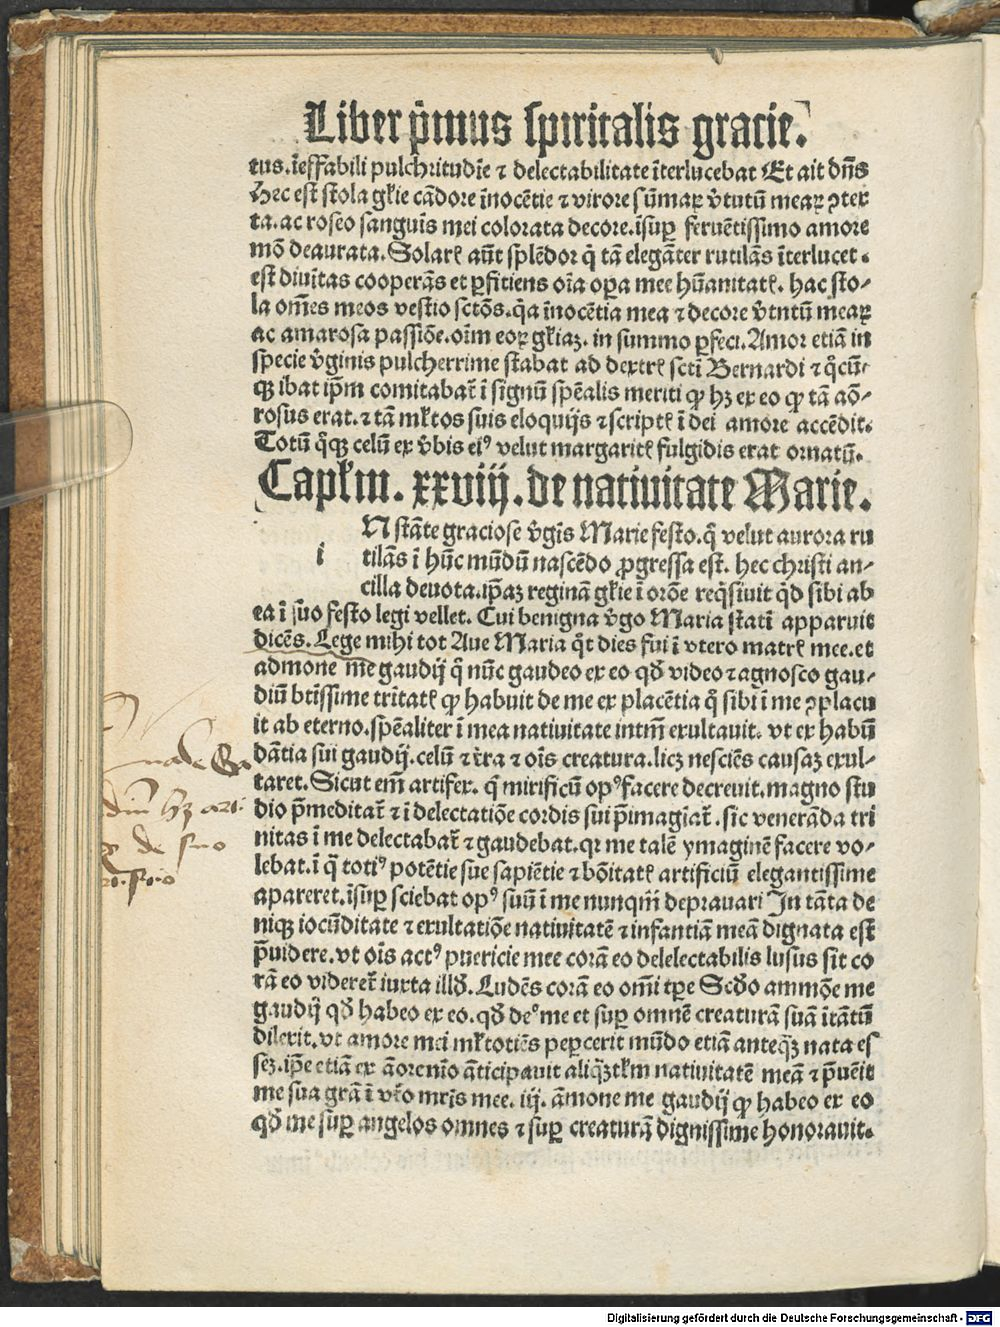 Liber p̄mus spiritalis gracie.
tus. īeffabili pulchritudīe ⁊ delectabilitate īterlucebat Et ait dn̄s
Hec est stola gl̄ie cādore īnocētie ⁊ virore sūmaꝝ v̄tutū meaꝝ ꝯtex
ta. ac roseo sanguīs mei colorata decore. īsuꝑ feruētissimo amore
mō deaurata. Solarꝭ aūt splēdor q̄ tā elegāter rutilās īterlucet.
est diuītas cooperās et ꝑfitiens oīa oꝑa mee hūanitatꝭ. hac sto-
la om̄es meos vestio sctōs. q̄a īnocētia mea ⁊ decore v̄tutū meaꝝ
ac amarosa passiōe. oīm eoꝝ gl̄iaꝫ. in summo ꝑfeci. Amor etiā in
specie v̄ginis pulcherrime stabat ad dextrꝭ sctī Bernardi ⁊ q̄cū-
qꝫ ibat ip̄m comitabat̄ ī signū spēalis meriti ꝙ hꝫ ex eo ꝙ tā aō-
rosus erat. ⁊ tā ml̄tos suis eloquijs ⁊ scriptꝭ ī dei amore accēdit.
Totū q̄qꝫ celū ex v̄bis eiꝰ velut margaritꝭ fulgidis erat ornatū.
Capl̄m. xxviij. de natiuitate Marie.
N stāte graciose v̄gīs Marie festo. q̄ velut aurora ru
i tilās ī hūc mūdū nascēdo ꝓgressa est. hec christi an-
cilla deuota. ip̄aꝫ reginā gl̄ie ī orōe req̄siuit q̄d sibi ab
ea ī suo festo legi vellet. Cui benigna v̄go Maria statī apparuit
dicēs. Lege mihi tot Aue Maria q̄t dies fui ī vtero matrꝭ mee. et
admone me gaudij q̄ nūc gaudeo ex eo qd̄ video ⁊ agnosco gau-
diū btīssime trītatꝭ ꝙ habuit de me ex placētia q̄ sibi ī me ꝯplacu
it ab eterno. spēaliter ī mea natiuitate intm̄ exultauit. vt ex habū
dātia sui gaudij. celū ⁊ t̄ra ⁊ oīs creatura. licꝫ nesciēs causaꝫ exul-
taret. Sicut em̄ artifex. q̄ mirificū opꝰ facere decreuit. magno stu
dio p̄meditat̄ ⁊ ī delectatiōe cordis sui p̄imagīat̄. sic venerāda tri
nitas ī me delectabat̄ ⁊ gaudebat. qꝛ me talē ymaginē facere vo-
lebat. ī q̄ totiꝰ potētie sue sapiētie ⁊ bōitatꝭ artificiū elegantissime
apareret. īsuꝑ sciebat opꝰ suū ī me nunqm̄ deprauari In tāta de
niqꝫ iocūditate ⁊ exultatiōe natiuitatē ⁊ infantiā meā dignata est
p̄uidere. vt oīs actꝰ puericie mee corā eo delelectabilis lusus sit co
rā eo videret̄ iuxta illd̄. Ludēs corā eo om̄i tꝑe Scd̄o ammōe me
gaudij qd̄ habeo ex eo. qd̄ deꝰ me et suꝑ omnē creaturā suā ītātū
dilexit. vt amore mei ml̄totiēs peꝑcerit mūdo etiā anteqꝫ nata es
seꝫ. ip̄e etiā ex āore nīo āticipauit aliqꝫtl̄m natiuitatē meā ⁊ p̄uēit
me sua grā ī vt̄o mr̄is mee. iij. āmone me gaudij ꝙ habeo ex eo
qd̄ me suꝑ angelos omnes ⁊ suꝑ creaturā dignissime honorauit.
de Ga
diū hꝫ arti
de suo
Digitalisierung gefördert durch die Deutsche Forschungsgemeinschaft - DFG